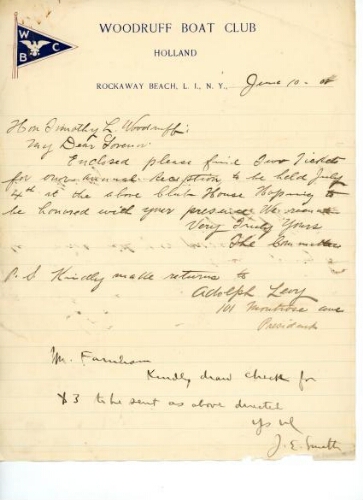 W
B C
WOODRUFF BOAT CLUB
HOLLAND
ROCKAWAY BEACH, L. I., N. Y., June 10 - 08
Hon Timothy L. Woodruff:
My Dear Govenor
Enclosed please find Two Tickets
for our annual Reception to be held July
4th at the above Club House Hopeing to
be honored with your presence We remain
Very Truly Yours
The Committee
P. S Kindly make returns to
Adolph Levy
101 Montrose ave
President
Mr. Farnham
Kindly draw check for
$3 to be sent as above directed
J. E. Smith